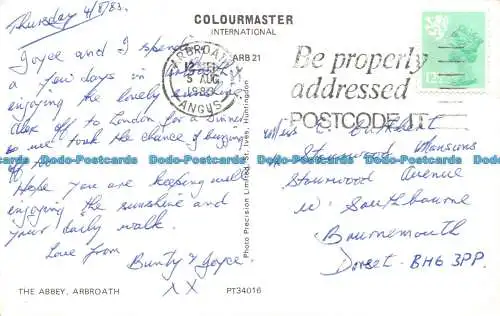 Thursday 4/8/83.
Joyce and I spend
a few days in
enjoying the lovely sunshine
Alex off to London for a dinner
so we took the chance of
Hope you are keeping well
enjoying the sunshine and
your daily walk.
Love from
Bunty & Joyce.
X X
THE ABBEY, ARBROATH
COLOURMASTER
INTERNATIONAL
ARB 21
Photo Precision Limited, St. Ives, Huntingdon
PT34016
ARBROATH
5 AUG
1983
ANGUS
Be properly
addressed
POSTCODE IT
12½
Mansions
Avenue
Southbourne
Bournemouth
Dorset. BH6 3PP.
Dodo-Postcards Dodo-Postcards Dodo-Postcards Dodo-Postcards Dodo-Postcards